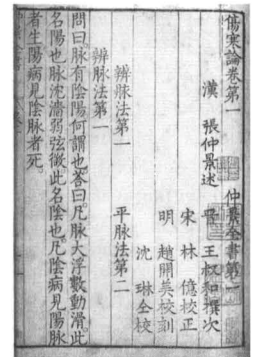 傷寒論卷第一　仲景全書第一
漢　張仲景述　晉　王叔和撰次
宋　林　億校正
明　趙開美校刻
沈　琳仝校
辨脉法第一　平脉法第二
辨脉法第一
問曰脉有陰陽何謂也荅曰凡脉大浮數動滑此
名陽也脉沈濇弱弦微此名陰也凡陰病見陽脉
者生陽病見陰脉者死